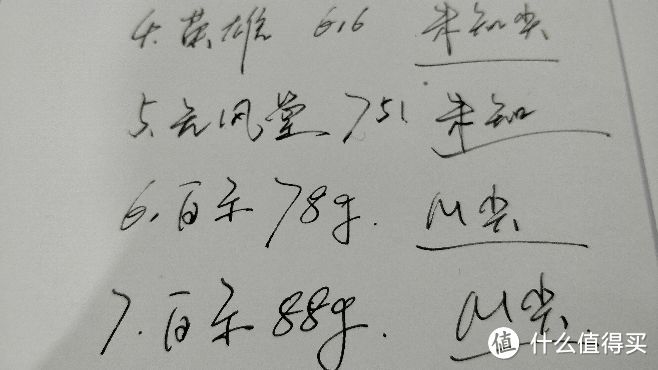 4. 英雄 616 未知尖
5. 无风堂 751 未知
6. 百乐 78g. M尖
7. 百乐 88g. M尖.
值 什么值得买